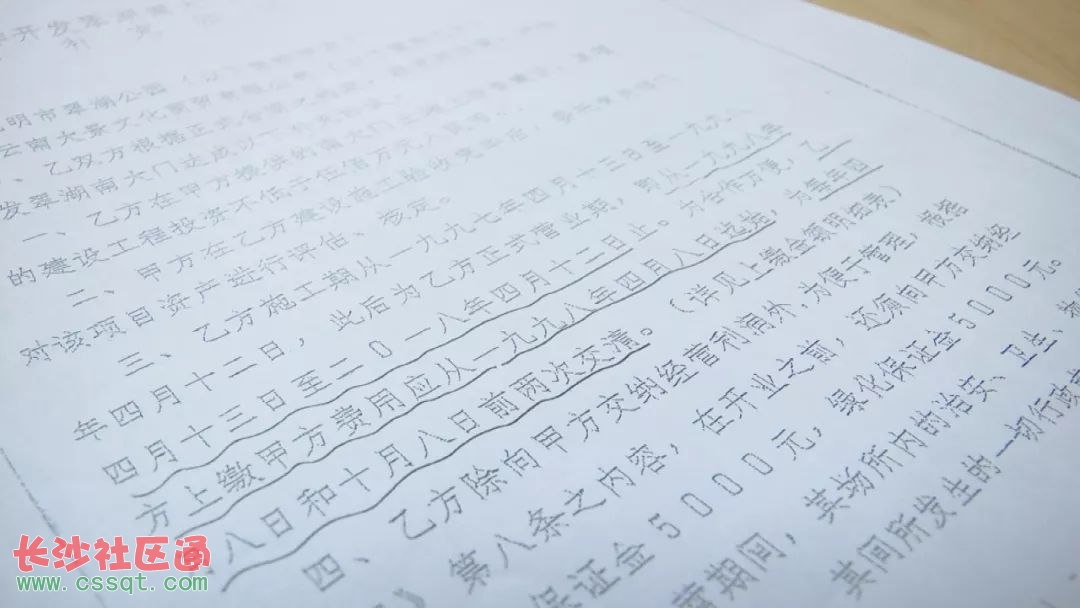 开发翠湖南
明市翠湖公园
云南大景文化商贸有限公司
、乙双方根据正式合
发翠湖南大门达成以下
一、乙方在甲方提供的南大门
的建设工程投资不低于伍佰万元人民币
二、甲方在乙方建设施工验收完毕后,
对该项目资产进行评估、核定。
三、乙方施工期从一九九七年四月十三日至一九九八
年四月十二日,此后为乙方正式营业期,即从一九九八年
四月十三日至二0一八年四月十二日止。为合作方便,乙
方上缴甲方费用应从一九九八年四月八日起始,为每年四
月八日和十月八日前两次交清。(详见上缴金额明细表)
四、乙方除向甲方交纳经营利润外,为便于管理,根据
》第八条之内容,在开业之前,还须向甲方交纳经
保证金5000元,绿化保证金5000元。
期间,其场所内的治安、卫生、
其间所发生的一切行政
长沙社区通
www.cssqt.com